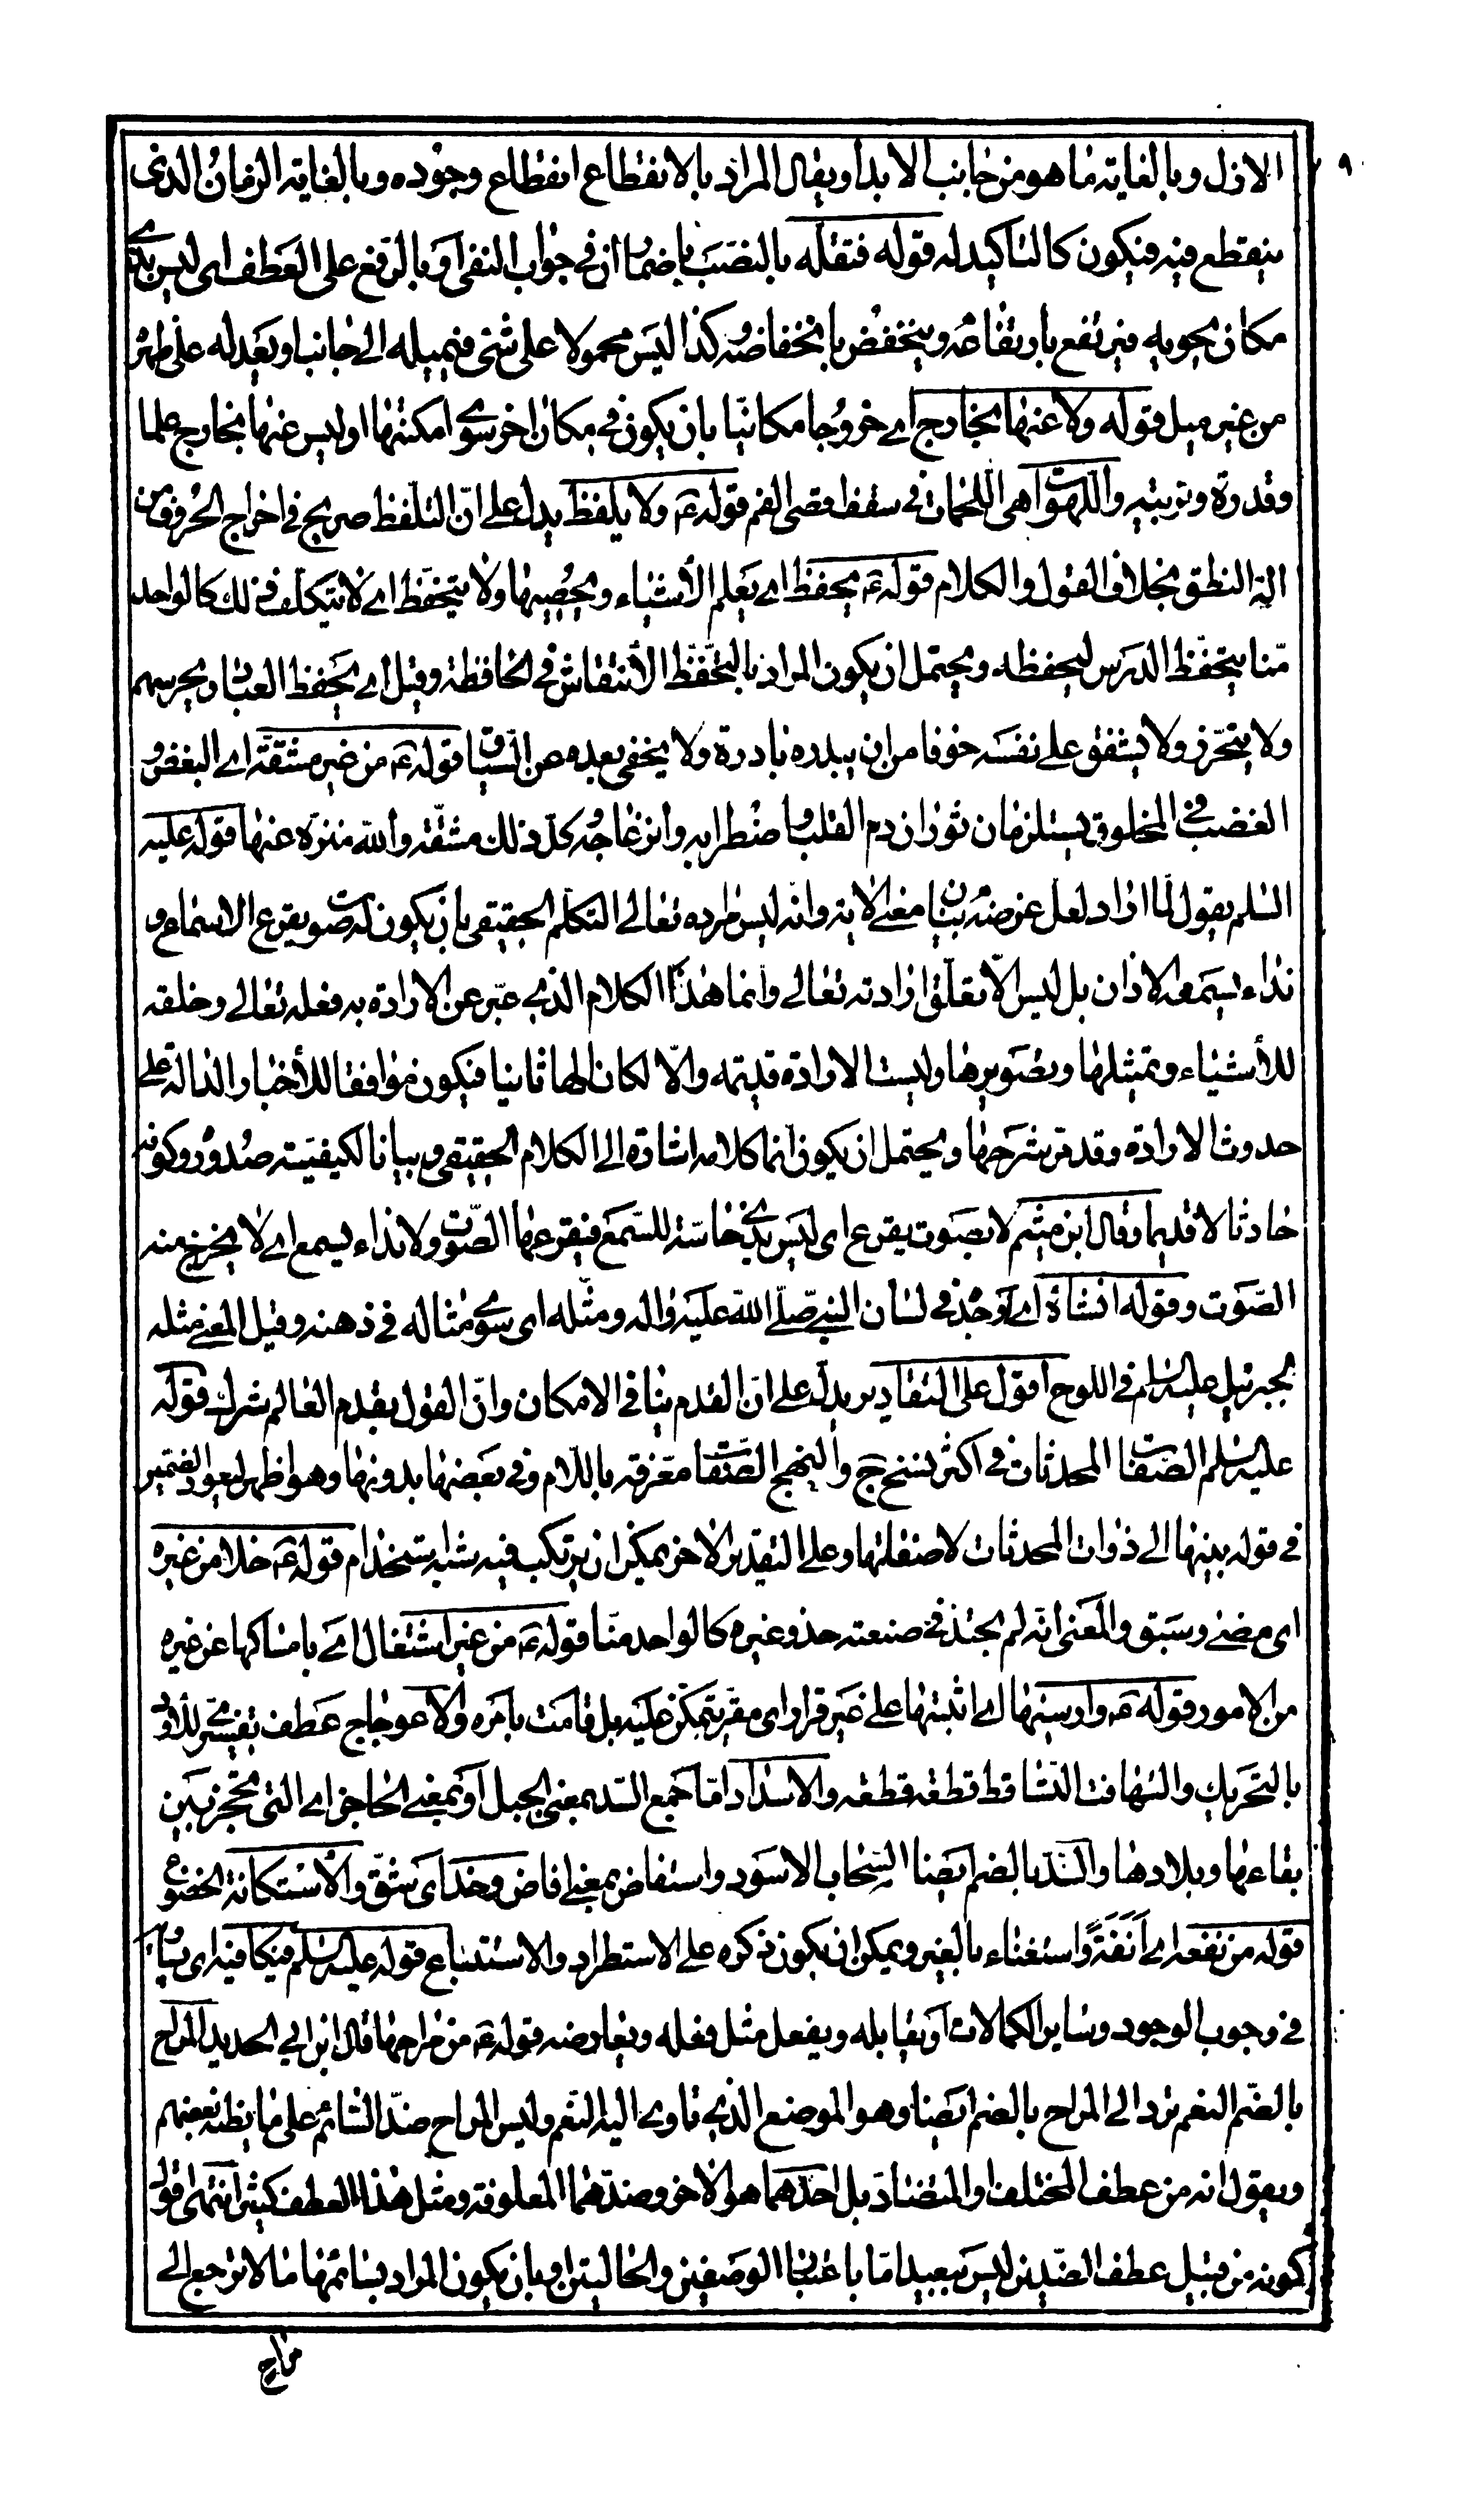 ٩
الازل وبالغاية ما هو من جانب الابد او يقال المراد بالانقطاع انقطاع وجوده وبالغاية الزمان الذى
ينقطع فيه فيكون كالتاكيد له قوله فتقله بالنصب باضمار ان فى جواب النفى او بالرفع على العطف اى ليس بذى
مكان يحويه فيرتفع بارتفاعه وينخفض بانخفاضه وكذا ليس محمولا على شئ فيميله الى جانب او يعدله على ظهر
من غير ميل قوله ولا عنها بخارج اى خروجا مكانيا بان يكون فى مكان اخر سوى امكنتها او ليس عنها بخارج علما
وقدرة وتربية واللهوات هى اللحمات فى سقف اقصى الفم قوله ع ولا يلفظ يدل على ان التلفظ صريح فى اخراج الحروف من
الة النطق بخلاف القول والكلام قوله ع يحفظ اى يعلم الأشياء ويحصيها ولا يتحفظ اى لا يتكلف ذلك كالواحد
منا يتحفظ الدرس ليحفظه ويحتمل ان يكون المراد بالتحفظ الأنتقاش فى الحافظة وقيل اى يحفظ العباد ويحرسهم
ولا يتحرز ولا يشفق على نفسه خوفا من ان يبدره بادرة ولا يخفى بعده عن السياق قوله ع من غير مشقة اى البغض و
الغضب فى المخلوق يستلزمان ثوران دم القلب واضطرابه وانزعاجه وكل ذلك مشقة والله منزه عنها قوله عليه
السلم يقول لما اراد لعل غرضه بيان معنى الاية وانه ليس مراده تعالى التكلم الحقيقى بان يكون له صوت يقرع الاسماع و
نداء يسمعه الاذان بل ليس الا تعلق ارادته تعالى وانما هذا الكلام الذى عبر عن الارادة به فعله تعالى وخلقه
للأشياء وتمثيلها وتصويرها وليست الارادة قديمة والا لكان الها ثانيا فيكون موافقا للأخبار الدالة على
حدوث الارادة وقد مر شرحها ويحتمل ان يكون انما كلامه اشارة الى الكلام الحقيقى وبيانا لكيفية صدوره وكونه
حادثا لا قديما وقال ابن ميثم لا بصوت يقرع اى ليس بذى حاسة للسمع فيقرعها الصوت ولا نداء يسمع اى لا يخرج منه
الصوت وقوله انشاه اى اوجد فى لسان النبى صلى الله عليه واله ومثله اى سوى مثاله فى ذهنه وقيل المعنى مثله
لجبرئيل عليه السلم فى اللوح اقول على التقادير يدل على ان القدم ينافى الامكان وان القول بقدم العالم شرك قوله
عليه السلم الصفات المحدثات فى اكثر نسخ ج والنهج الصفات معرفة باللام وفى بعضها بدونها وهو اظهر ليعود الضمير
فى قوله بينها الى ذوات المحدثات لا صفاتها وعلى التقدير الاخر يمكن ان يرتكب فيه شبه استخدام قوله ع خلا من غيره
اى مضى وسبق والمعنى انه لم يحتذ فى صنعته حذو غيره كالواحد منا قوله ع من غير اشتغال اى بامساكها عن غيره
من الامور قوله ع وارسيها اى اثبتها على غير قرار اى مقر يتمكن عليه بل قامت بامره والاعوجاج عطف تفسير للأود
بالتحريك والتهافت التساقط قطعة قطعة والاسداد اما جمع السد بمعنى الجبل او بمعنى الحاجز اى التى تحجز بين
بقاعها وبلادها والسد بالضم ايضا السحاب الاسود واستفاض بمعنى افاض وخد اى شق والاستكانة الخضوع
قوله من نفعه اى انفة واستغناء بالغير ويمكن ان يكون ذكره على الاستطراد والاستتباع قوله عليه السلم فيكافيه اى يساويه
فى وجوب الوجود وساير الكمالات او يقابله ويفعل مثل فعله ويعارضه قوله ع من مراحها قال ابن ابى الحديد المراح
بالضم النعم ترد الى المراح بالضم ايضا وهو الموضع الذى تاوى اليه النعم وليس المراح ضد السائم على ما يظنه بعضهم
ويقول انه من عطف المختلف او المتضاد بل احدهما هو الاخر وضدهما المعلوفة ومثل هذا العطف كثير انتهى اقول
كونه من قبيل عطف الضدين ليس ببعيد اما باعتبار الوصفين والحالتين او بان يكون المراد بسائمها ما لا ترجع الى
مراح